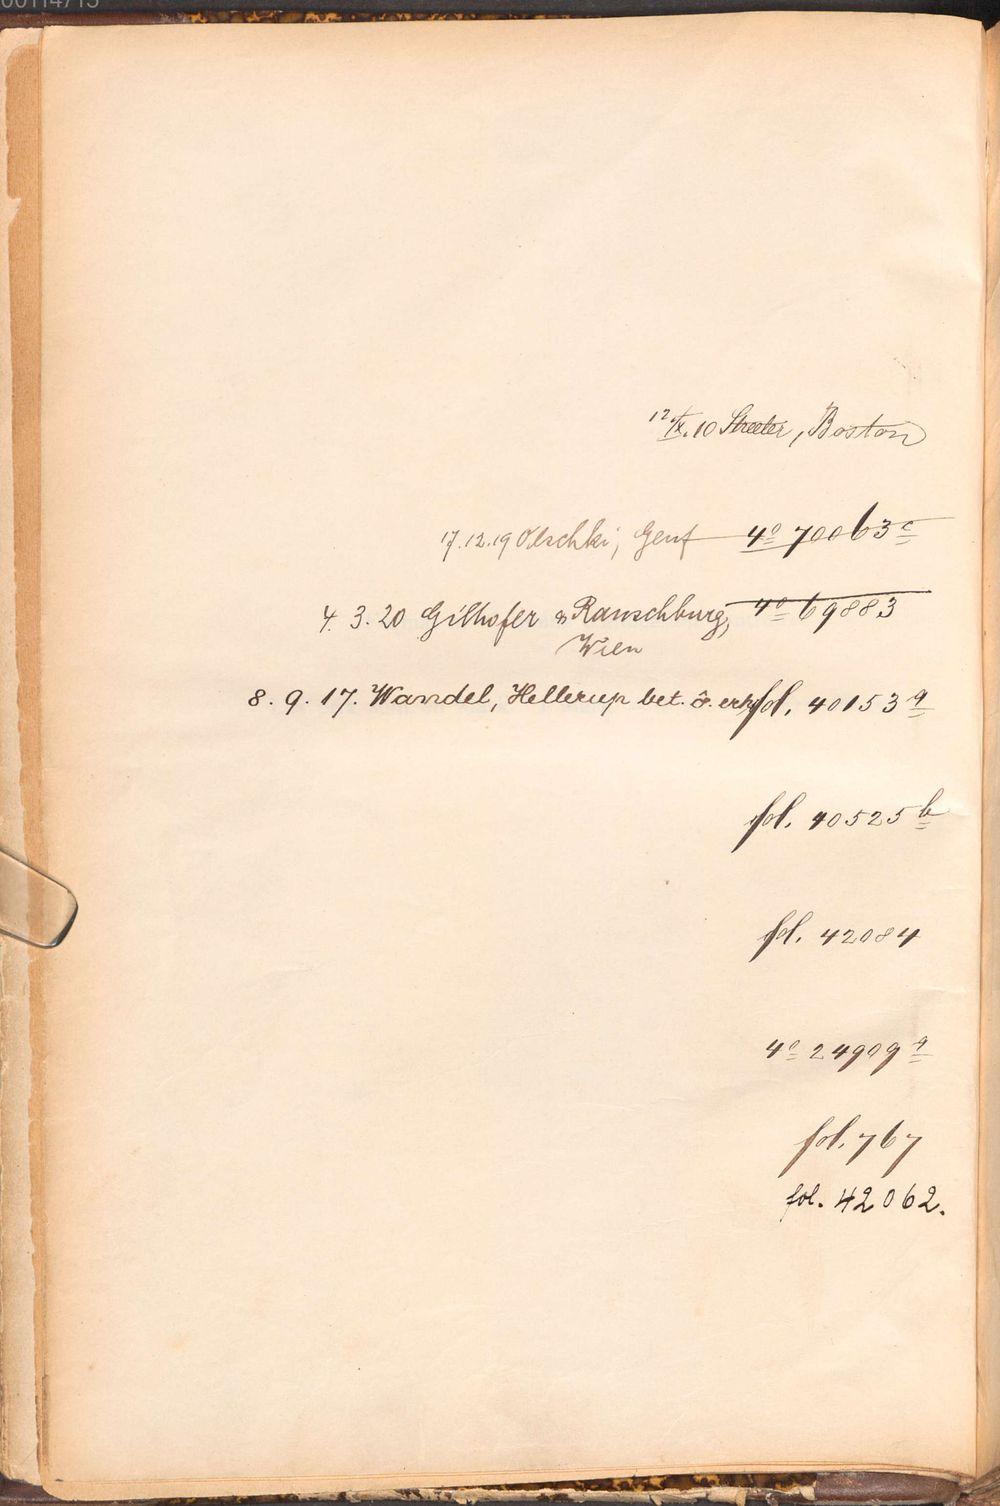 00114713
12/IX. 10 Streeter, Boston
17.12.19 Olschki, Genf 4º 70063 c
4. 3. 20 Gilhofer u Ranschburg, 4º 69883
Wien
8. 9. 17. Wandel, Hellerup bet. fol. 40153 a
fol. 40525 b
fol. 42084
4º 24909 a
fol. 767
fol. 42062.